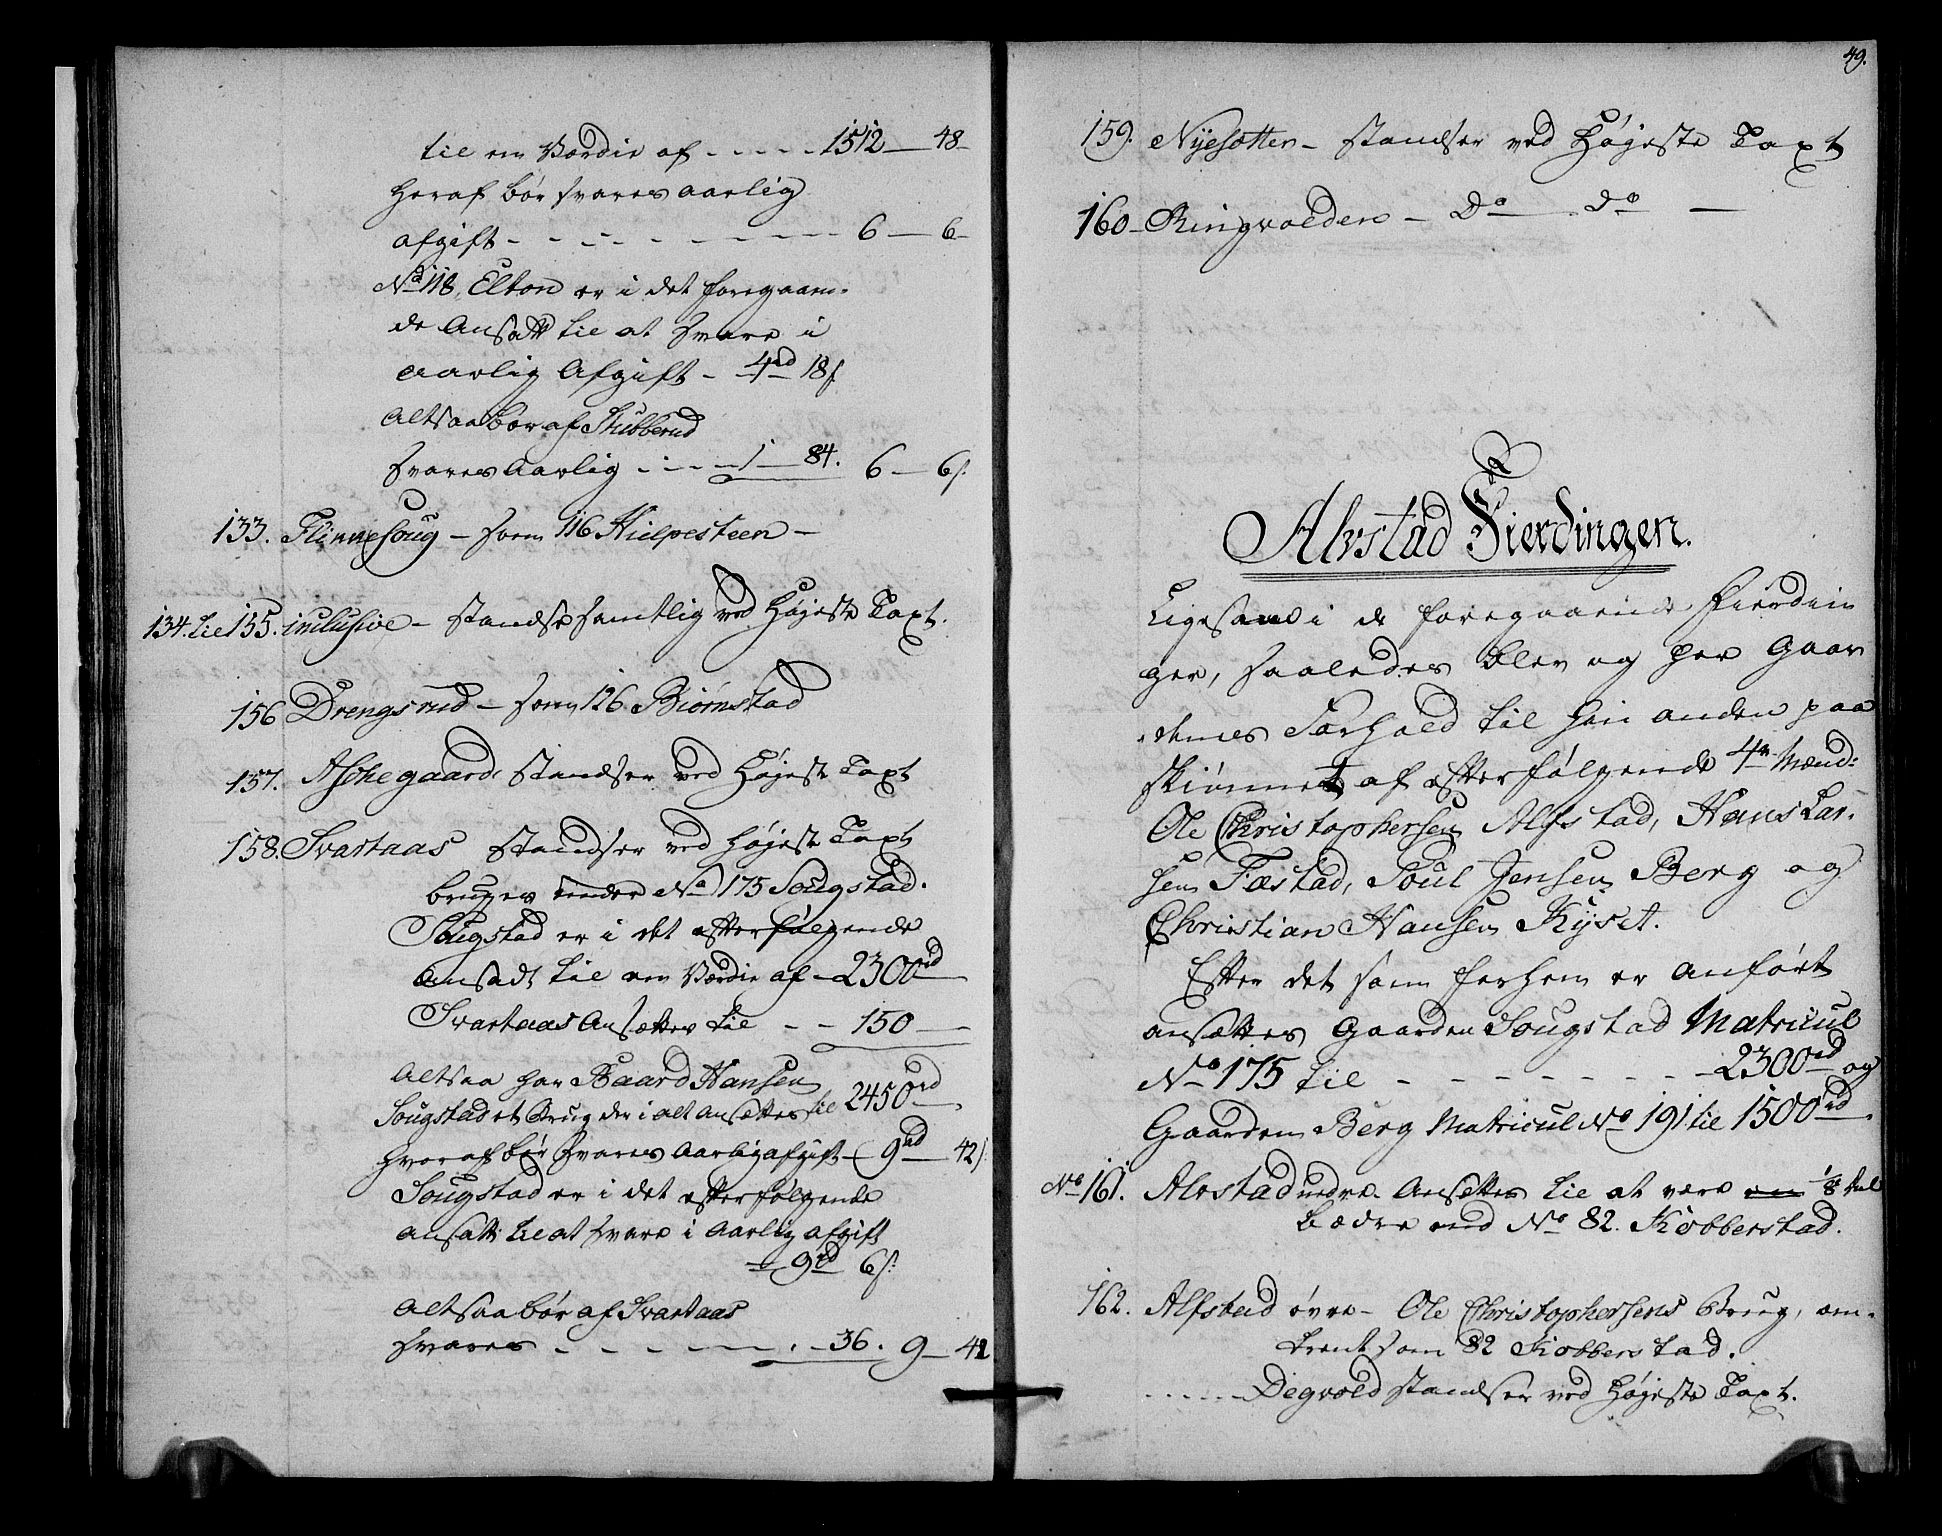 til en Værdie af - - - - 1512 — 48
heraf bør svares aarlig
afgift - - - - - - - - 6 — 6
No 118, Elton er i det foregaaen-
de Ansatt til at svare i
aarlig Afgift - 4rd 18s
Altsaa bør af Stubberud
svares Aarlig - - - - 1 — 84. 6 — 6s.
133. Flinnesoug - som 116 Hielpesteen -
134. til 155. inclusive - standse samtlig ved Højeste Taxt.
156 Drengsrud - som 126 Biørnstad
157. Aschegaard, standser ved Højeste Taxt
158. Svartaas standser ved Højeste Taxt
bruges under No 175 Sougstad.
Sougstad er i det efterfølgende
ansadt til en Værdie af - 2300rd
Svartaas Ansættes til - - 150 —
Altsaa har Baard Hansen
Sougstad et Brug der i alt Ansættes til 2450rd
hvoraf bør svares Aarlig afgift - (9rd — 42s.
Sougstad er i det efterfølgende
ansatt til at svare i Aarlig afgift
- 9rd 6s.
Altsaa bør af Svartaas
svares - - - - - - - 36. 9 — 42
49.
159. Nyesætter - standser ved Højeste Taxt
160 - Ringvolden - Do do —
Alvstad Fierdingen.
Ligesaae i de foregaaende Fierdin
ger, saaledes blev og her Gaar
dernes Forhold til hin anden paa
skiønnet af efterfølgende 4re Mænd:
Ole Christophersen Alfstad, Hans Lar-
sen Fæstad, Poul Jensen Berg og
Christian Hansen Kyset.
Efter det som forhen er anført
ansættes Gaarden Sougstad Matricul
No 175 til - - - - - - - - 2300rd og
Gaarden Berg Matricul No 191 til 1500rd.
No 161. Alvstad nedre. Ansættes til at være en 1/8 deel
bedre end No 82. Kobberstad.
162. Alfstad øvre - Ole Christophersens Brug, om-
trent som 82 Kobberstad.
- - - - - Degvold standser ved Højeste Taxt.